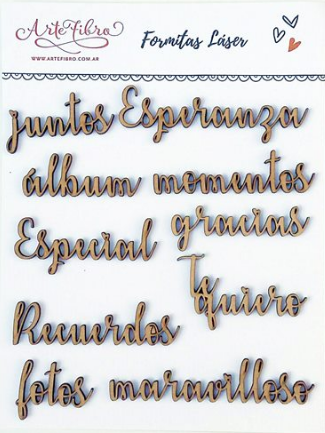 ArteFibro
WWW.ARTEFIBRO.COM.AR
Formitas Láser
juntos Esperanza
álbum momentos
Especial gracias
Te quiero
Recuerdos
fotos maravilloso